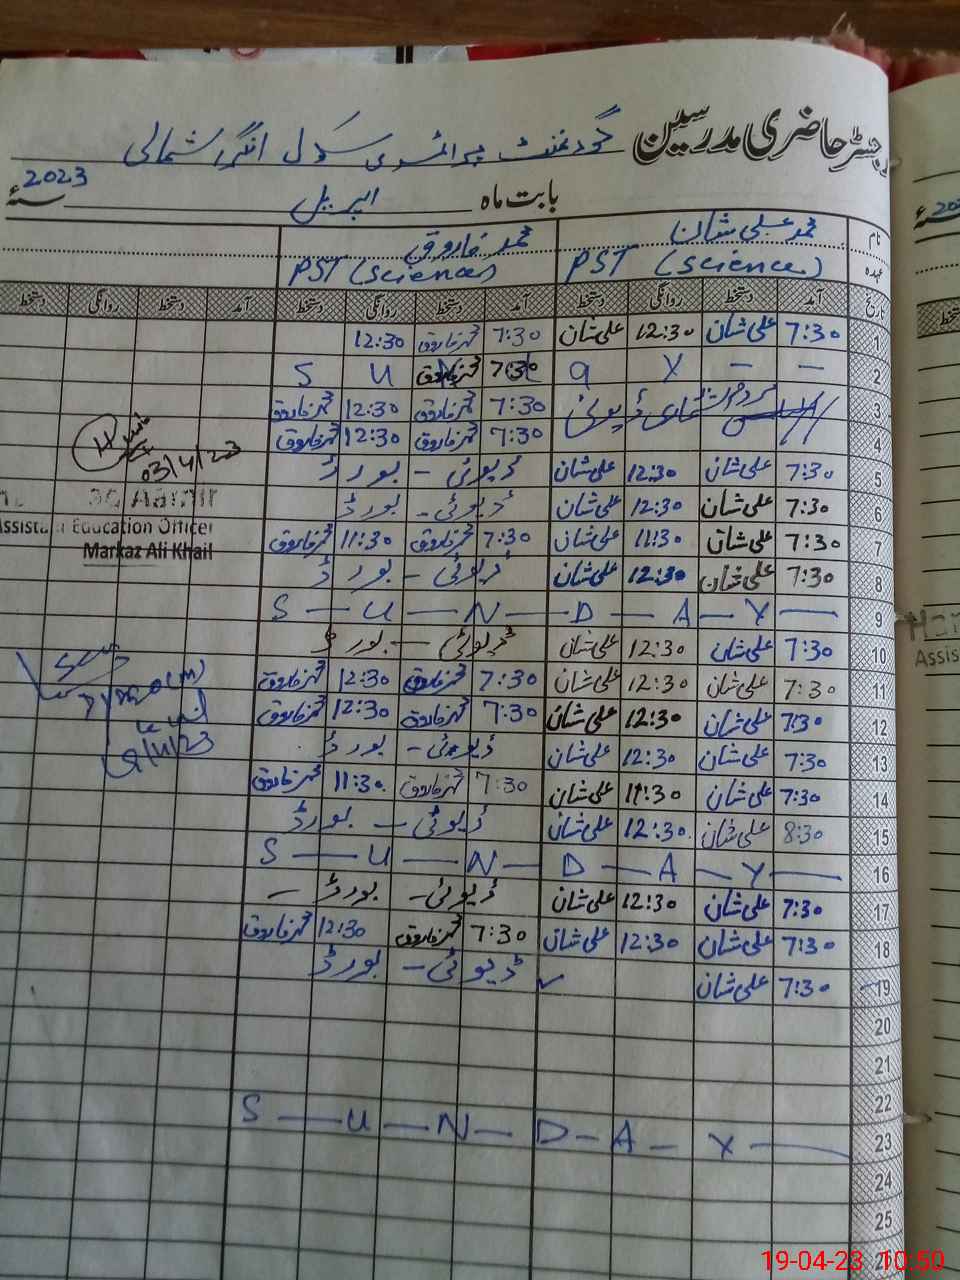 رجسٹر حاضری مدرسین گورنمنٹ پرائمری سکول انگر شمالی
بابت ماہ اپریل سنہ 2023ء
نام محمد علی شان محمد فاروق
عہدہ PST (Science) PST (Science)
تاریخ آمد دستخط روانگی دستخط آمد دستخط روانگی دستخط آمد دستخط روانگی دستخط
1 7:30 علی شان 12:30 علی شان 7:30 محمد فاروق 12:30
2 - - Y a 7:30 محمد فاروق U S
3 مردم شماری ڈیوٹی 7:30 محمد فاروق 12:30 محمد فاروق
4 7:30 محمد فاروق 12:30 محمد فاروق
5 7:30 علی شان 12:30 علی شان ڈیوٹی - بورڈ
6 7:30 علی شان 12:30 علی شان ڈیوٹی - بورڈ
7 7:30 علی شان 11:30 علی شان 7:30 محمد فاروق 11:30 محمد فاروق
8 7:30 علی شان 12:30 علی شان ڈیوٹی - بورڈ
9 S — U — N — D — A — Y —
10 7:30 علی شان 12:30 علی شان ڈیوٹی - بورڈ
11 7:30 علی شان 12:30 علی شان 7:30 محمد فاروق 12:30 محمد فاروق
12 7:30 علی شان 12:30 علی شان 7:30 محمد فاروق 12:30 محمد فاروق
13 7:30 علی شان 12:30 علی شان ڈیوٹی - بورڈ
14 7:30 علی شان 11:30 علی شان 7:30 محمد فاروق 11:30 محمد فاروق
15 8:30 علی شان 12:30 علی شان ڈیوٹی - بورڈ
16 S — U — N — D — A — Y —
17 7:30 علی شان 12:30 علی شان ڈیوٹی - بورڈ -
18 7:30 علی شان 12:30 علی شان 7:30 محمد فاروق 12:30 محمد فاروق
19 7:30 علی شان ڈیوٹی - بورڈ
20
21
22
23 S — U — N — D — A — Y —
24
25
03/4/23
Aamir
Assistant Education Officer
Markaz Ali Khail
Assis
19-04-23 10:50